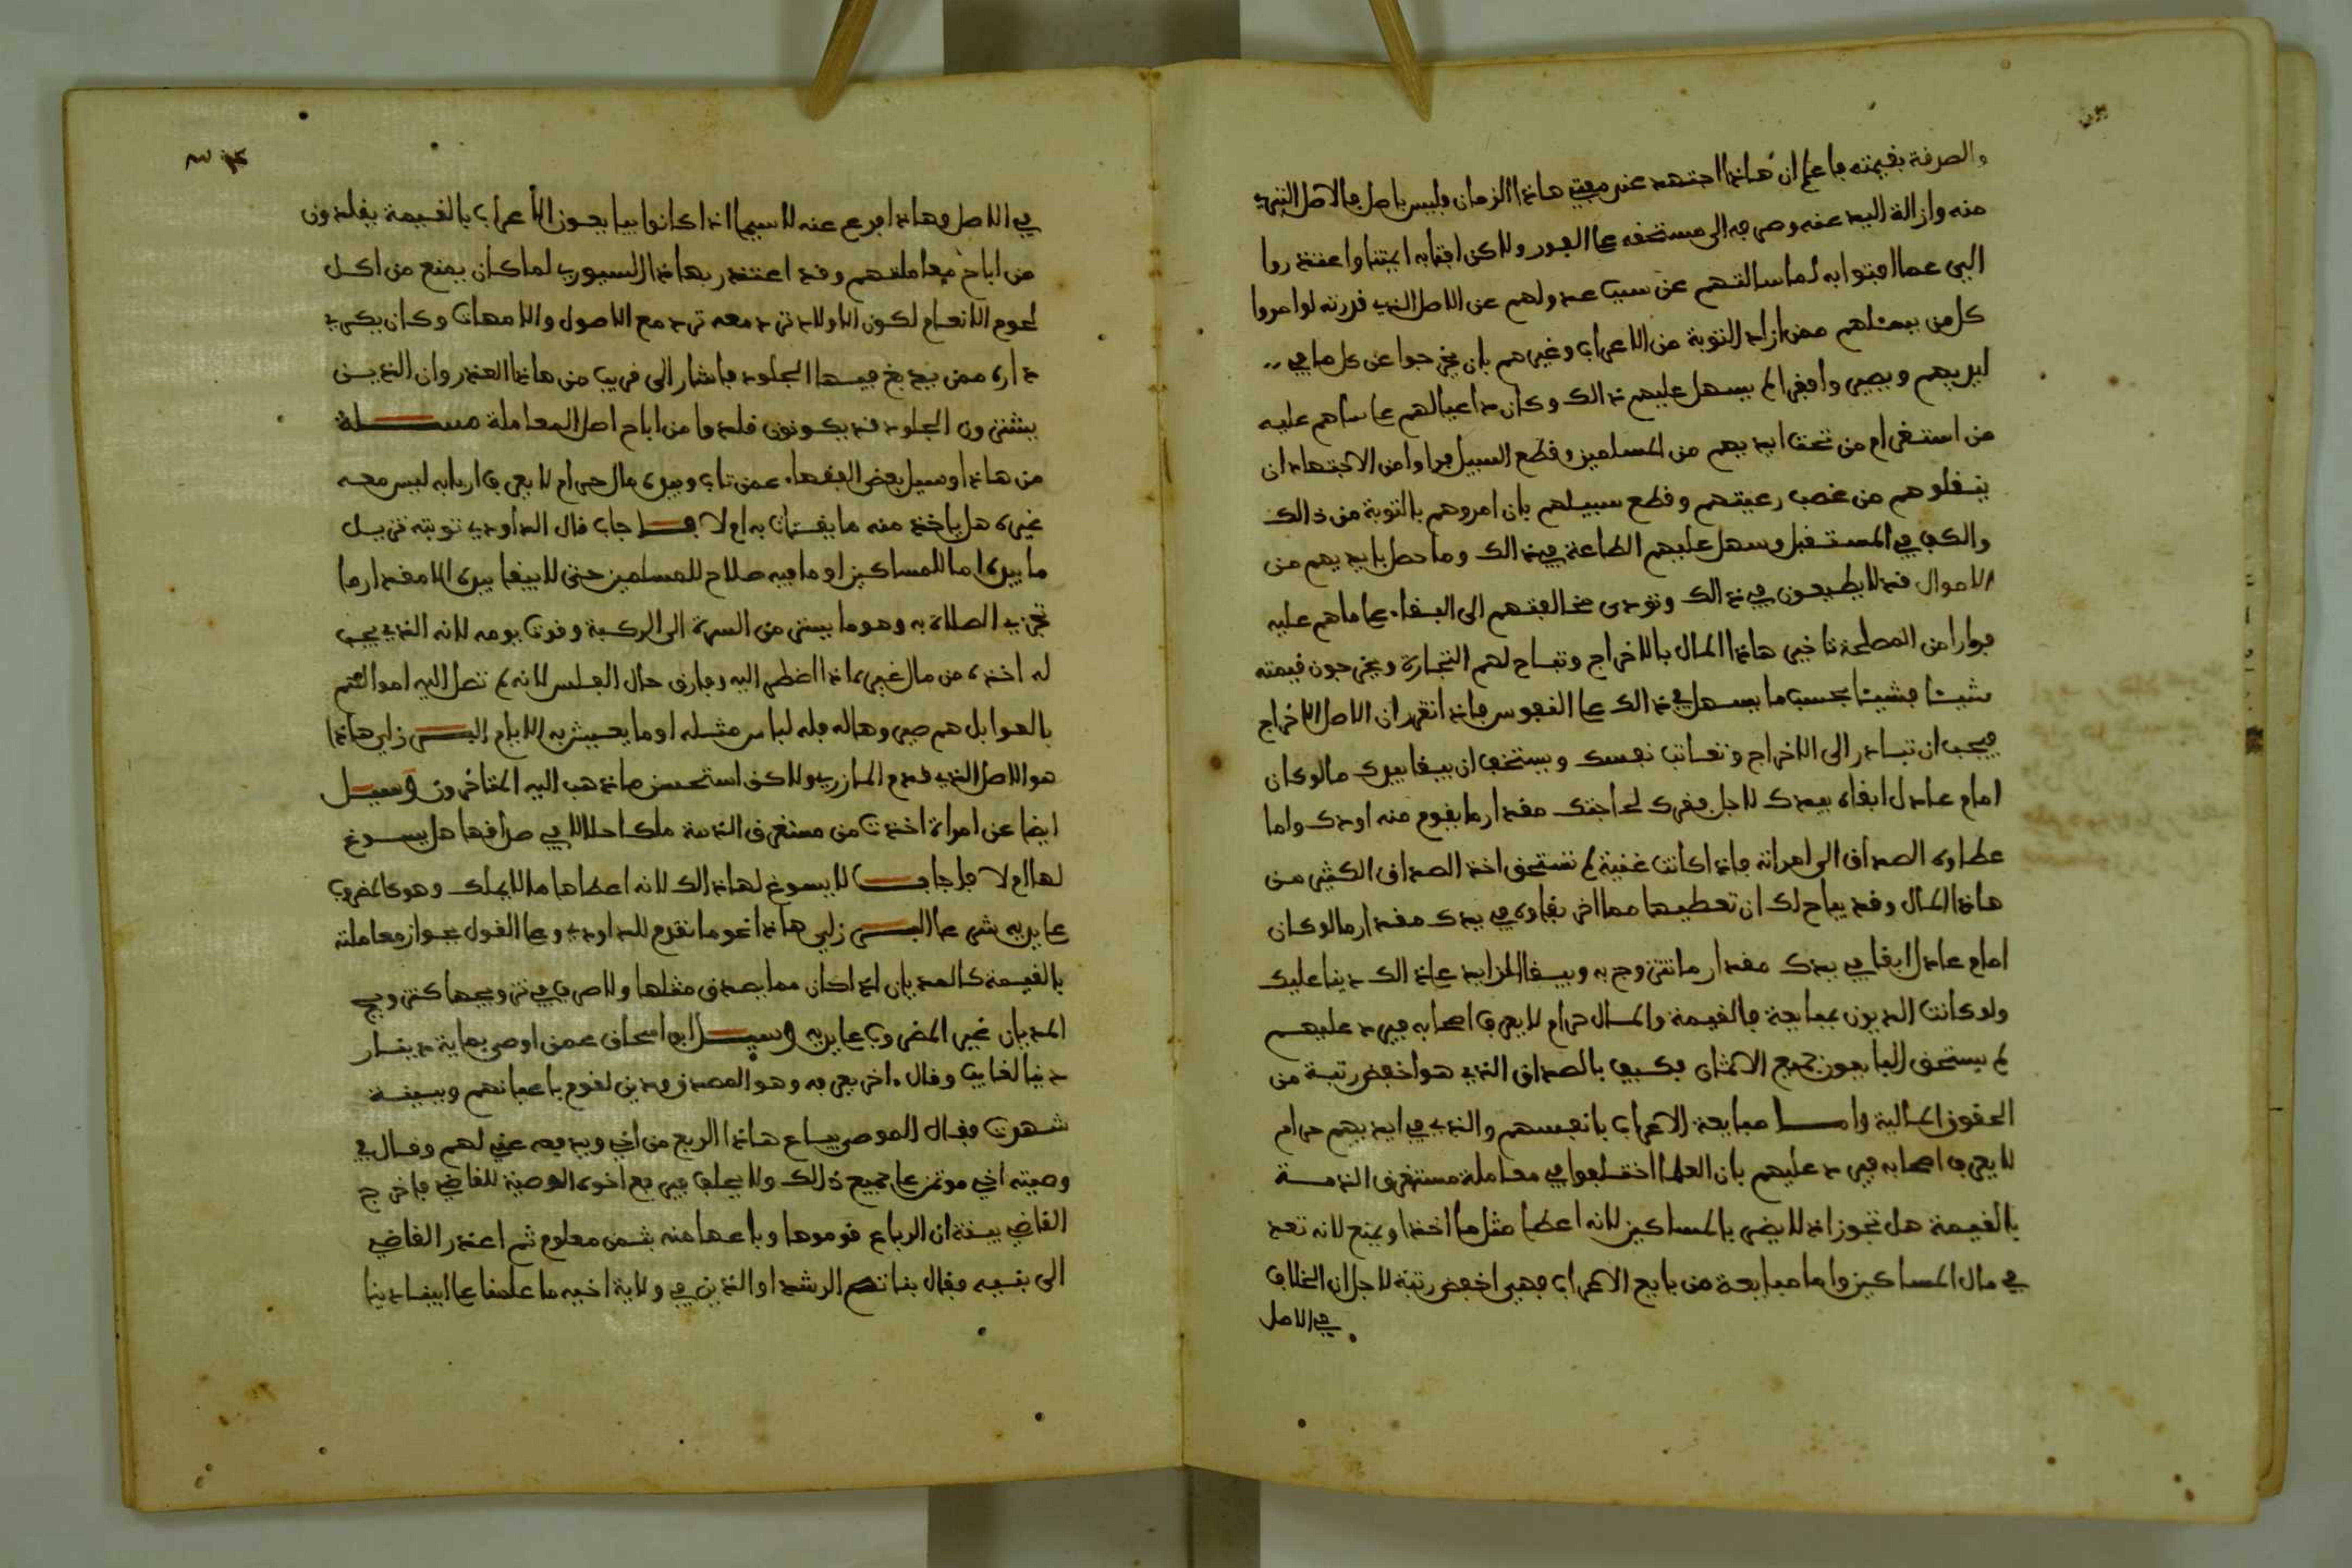 والصدقة بقيمته فاعلم ان هاذا اجتهد عند مفتي هاذا الزمان فليس باصل فالاصل التبري
منه وازالة اليد عنه وصرفه الى مستحقه على الفور ولاكن افتا به ايمتنا واعتذروا
الي عما افتوا به لما سالتهم عن سبب عدولهم عن الاصل الذي قررته لو امروا
كل من بمثلهم ممن اراد التوبة من الاعراب وغيرهم بان يخرجوا عن كل ما في
ايديهم ويصير وا فقرا لم يسهل عليهم ذالك وكان داعيا لهم على ما هم عليه
من استغرام من تحت ايديهم من المسلمين وقطع السبيل فراوا من الاجتهاد ان
ينقلوهم من غصب رعيتهم وقطع سبيلهم بان امروهم بالتوبة من ذالك
والكف في المستقبل وسهل عليهم الطاعة في ذالك وما حصل بايديهم من
الاموال قد لا يطيعون في ذالك وتودى مخالفتهم الى البقاء على ما هم عليه
فراوا من المصلحة تاخير هاذا المال بالاخراج وتباح لهم التجارة ويخرجون قيمته
شيئا فشيئا بحسب ما يسهل في ذالك على النفوس فاذا تقرر ان الاصل الاخراج
فيجب ان تبادر الى الاخراج وتعاتب نفسك ويستخف ان يبقا بيدك ما لو كان
امام عادل ابقاه بيدك لاجل فقرك لحاجتك مقدار ما يقوم منه اودك واما
عطاوك الصداق الى امراته فاذا كانت غنية لم تستحق اخذ الصداق الكثير من
هاذا المال وقد يباح لك ان تعطيها مما اخر بقاوه في يدك مقدار ما لو كان
امام عادل ابقا في يدك مقدار ما تتزوج به ويبقا الزايد على ذالك دينا عليك
ولو كانت الديون بمبايعة فالقيمة والمال حرام لا يعرف اصحابه فيرد عليهم
لم يستحق البايعون جميع الاثمان فكيف بالصداق الذي هو اخفض رتبة من
الحقوق المالية واما مبايعة الاعراب بانفسهم والذي في ايديهم حرام
لا يعرف اصحابه فيرد عليهم بان العلما اختلفوا في معاملة مستغرق الذمة
بالقيمة هل تجوز اذ لا يضر بالمساكين لانه اعطا مثل ما اخذ او يمنع لانه تعد
في مال المساكين واما مبايعة من بايع الاعراب فهي اخفض رتبة لاجل ان الخلاف
في الاصل
في الاصل وهاذا فرع عنه لاسيما اذا كانوا يبايعون الاعراب بالقيمة يقلدون
من اباح معاملتهم وقد اعتذر بهاذا السيوري لما كان يمنع من اكل
لحوم الانعام لكون الاولاد ترد معه ترد مع الاصول والامهات وكان يكري
داره ممن يدبغ فيها الجلود فاشار الى قريب من هاذا العذر وان الذين
يشترون الجلود قد يكونون قلدوا من اباح اصل المعاملة مسئلة
من هاذا وسيل بعض الفقهاء عمن تاب وبيده مال حرام لا يعرف اربابه ليس معه
غيره هل ياخذ منه ما يقتات به ام لا فاجاب قال الداودي توبته تزيل
ما بيده اما للمساكين او ما فيه صلاح للمسلمين حتى لا يبقا بيده الا مقدار ما
تجزي الصلاة به وهو ما يستر من السرة الى الركبة وقوت يومه لانه الذي يجب
له اخذه من مال غيره اذا اضطر اليه وفارق حال الفلس لانه لم تصل اليه اموالهم
بالعوا بل هم صيروها له فله لباس مثله او ما يعيش به الايام البرزلي هاذا
هو الاصل الذي قدم المازري ولاكن استحسن ما ذهب اليه المتاخرون وسيل
ايضا عن امراة اخذت من مستغرق الذمة ملكا حلالا في صداقها هل يسوغ
لها ام لا فاجاب لا يسوغ لها ذالك لانه اعطاها ما لا يملك وهو كالمضروب
على يديه شي على البرزلي هاذا نحو ما تقدم للداودي وعلى القول بجواز معاملته
بالقيمة كالمديان اذا كان مما يصدق مثلها ولا صرف في تزويجها كتزويج
المديان غير المضروب على يديه وسيل ابو اسحاق عمن اوصى بماية دينار
دينا لغايب وقال اخر يعرفه وهو المصدق ودين لقوم باعيانهم وبينة
شهرت فقال الموصي يباع هاذا الربع من اخي ويدفعه عني لهم وقال في
وصيته اخي موتمن على جميع ذالك ولا يحلف فيرفع اخوه الوصية للقاضي فاخرج
القاضي بينة ان الرباع قوموها وباعها منه بثمن معلوم ثم اعذر القاضي
الى بقيه فقال بناته الرشد او الذين في ولاية اخيه ما علمنا على ابينا دينا